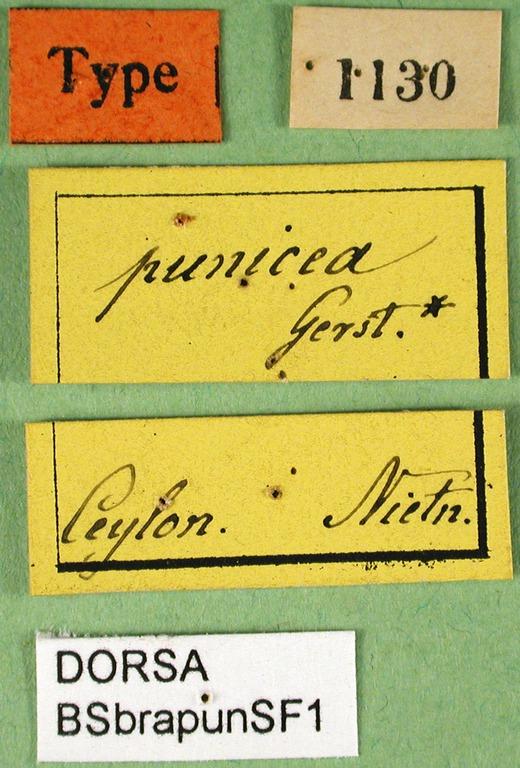 Type
1130
punicea
Gerst.*
Ceylon. Nietn.
DORSA
BSbrapunSF1